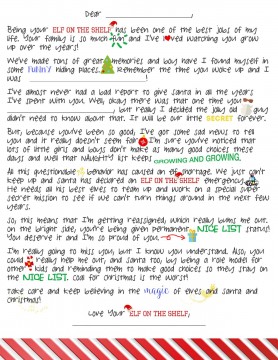 Dear ____________________,
Being your ELF ON THE SHELF has been one of the best jobs of my
life. Your family is so much fun and I've loved watching you grow
up over the years!
We've made tons of great memories and boy have I found myself in
some funny hiding places. Remember the time you woke up and I
was ____________________!
I've almost never had a bad report to give santa in all the years
I've spent with you. Well, okay there was that one time you
____________________, but really I decided the jolly old guy
didn't need to know about that. It will be our little SECRET forever.
But, because you've been so good, I've got some sad news to tell
you and it really doesn't seem fair. I'm sure you've noticed that
lots of little girls and boys don't make as many good choices these
days and well that NAUGHTY list keeps GROWING AND GROWING.
All this questionable behavior has caused an elf shortage. We just can't
keep up and Santa has declared an ELF ON THE SHELF emergency!
He needs all his best elves to team up and work on a special
secret mission to see if we can't turn things around in the next few
years.
So, this means that I'm getting reassigned, which really bums me out.
On the bright side, you're being given permanent NICE LIST status!
You deserve it and I'm so proud of you.
I'm really going to miss you, but I know you understand. Also, you
could really help me out, and Santa too, by being a role model for
other kids and reminding them to make good choices so they stay on
the NICE LIST. Coal for Christmas is the worst!
Take care and keep believing in the magic of elves and santa and
christmas!
Love Your ELF ON THE SHELF,
____________________